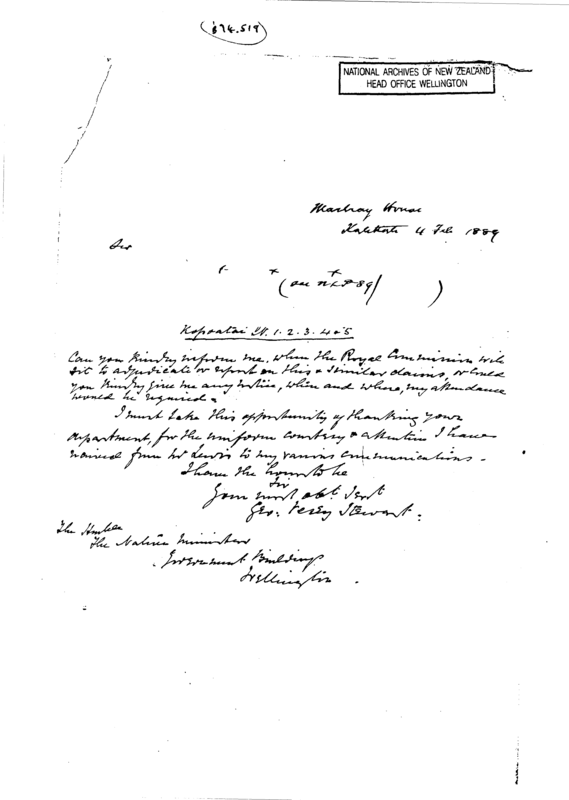 874.519
NATIONAL ARCHIVES OF NEW ZEALAND
HEAD OFFICE WELLINGTON
House
Katikati 4 Feb 1889
Sir
Can you kindly inform me, when the Royal Commission will
sit to adjudicate or report on this & similar claims, or could
you kindly give me any notice, when and where, my attendance
would be required.
I must take this opportunity of thanking your
department, for the uniform courtesy & attention I have
received from Mr Lewis to my various communications.
I have the honor to be
Sir
Your most obt Servt
Geo: Vesey Stewart.
The Honble
The Native Minister
Government Buildings
Wellington